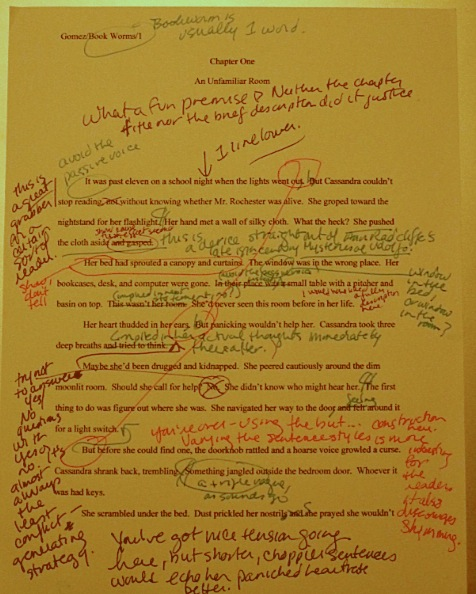 Gomez/Book Worms/1
Bookworm is
usually 1 word.
Chapter One
An Unfamiliar Room
What a fun premise! Neither the chapter
title nor the brief description did it justice
1 line lower.
avoid the
passive voice
this is
a great
grabber
for a
certain
sort of
reader.
It was past eleven on a school night when the lights went out. But Cassandra couldn't
stop reading, not without knowing whether Mr. Rochester was alive. She groped toward the
nightstand for her flashlight. Her hand met a wall of silky cloth. What the heck? She pushed
the cloth aside and gasped.
this is
a device straight out of
late 18th century mysteries of Udolpho.
show,
don't
tell
Her bed had sprouted a canopy and curtains. The window was in the wrong place. Her
(avoid the passive voice)
bookcases, desk, and computer were gone. In their place was a small table with a pitcher and
basin on top. This wasn't her room. She'd never seen this room before in her life.
window
in the
bed
or window
in the
room?
Her heart thudded in her ears. But panicking wouldn't help. Cassandra took three
deep breaths and tried to think.
her actual thoughts immediately
thereafter.
Maybe she'd been drugged and kidnapped. She peered cautiously around the dim
moonlit room. Should she call for help? No. She didn't know who might hear her. The first
thing to do was figure out where she was. She navigated her way to the door and felt around it
seeing
for a light switch.
try not
to answer
yes/
no
questions
with
yes or
no.
almost
always
the
least
conflict-
generating
strategy.
You're over-using the but... construction
here.
Varying the sentence styles is more
interesting
for
the
reader
it also
discourages
skimming.
But before she could find one, the doorknob rattled and a hoarse voice growled a curse.
Cassandra shrank back, trembling. Something jangled outside the bedroom door. Whoever it
was had keys.
a trifle vague,
as sounds go
She scrambled under the bed. Dust prickled her nostrils and she prayed she wouldn't
You've got nice tension going
here, but shorter, choppier sentences
would echo her panicked heartrate
better.